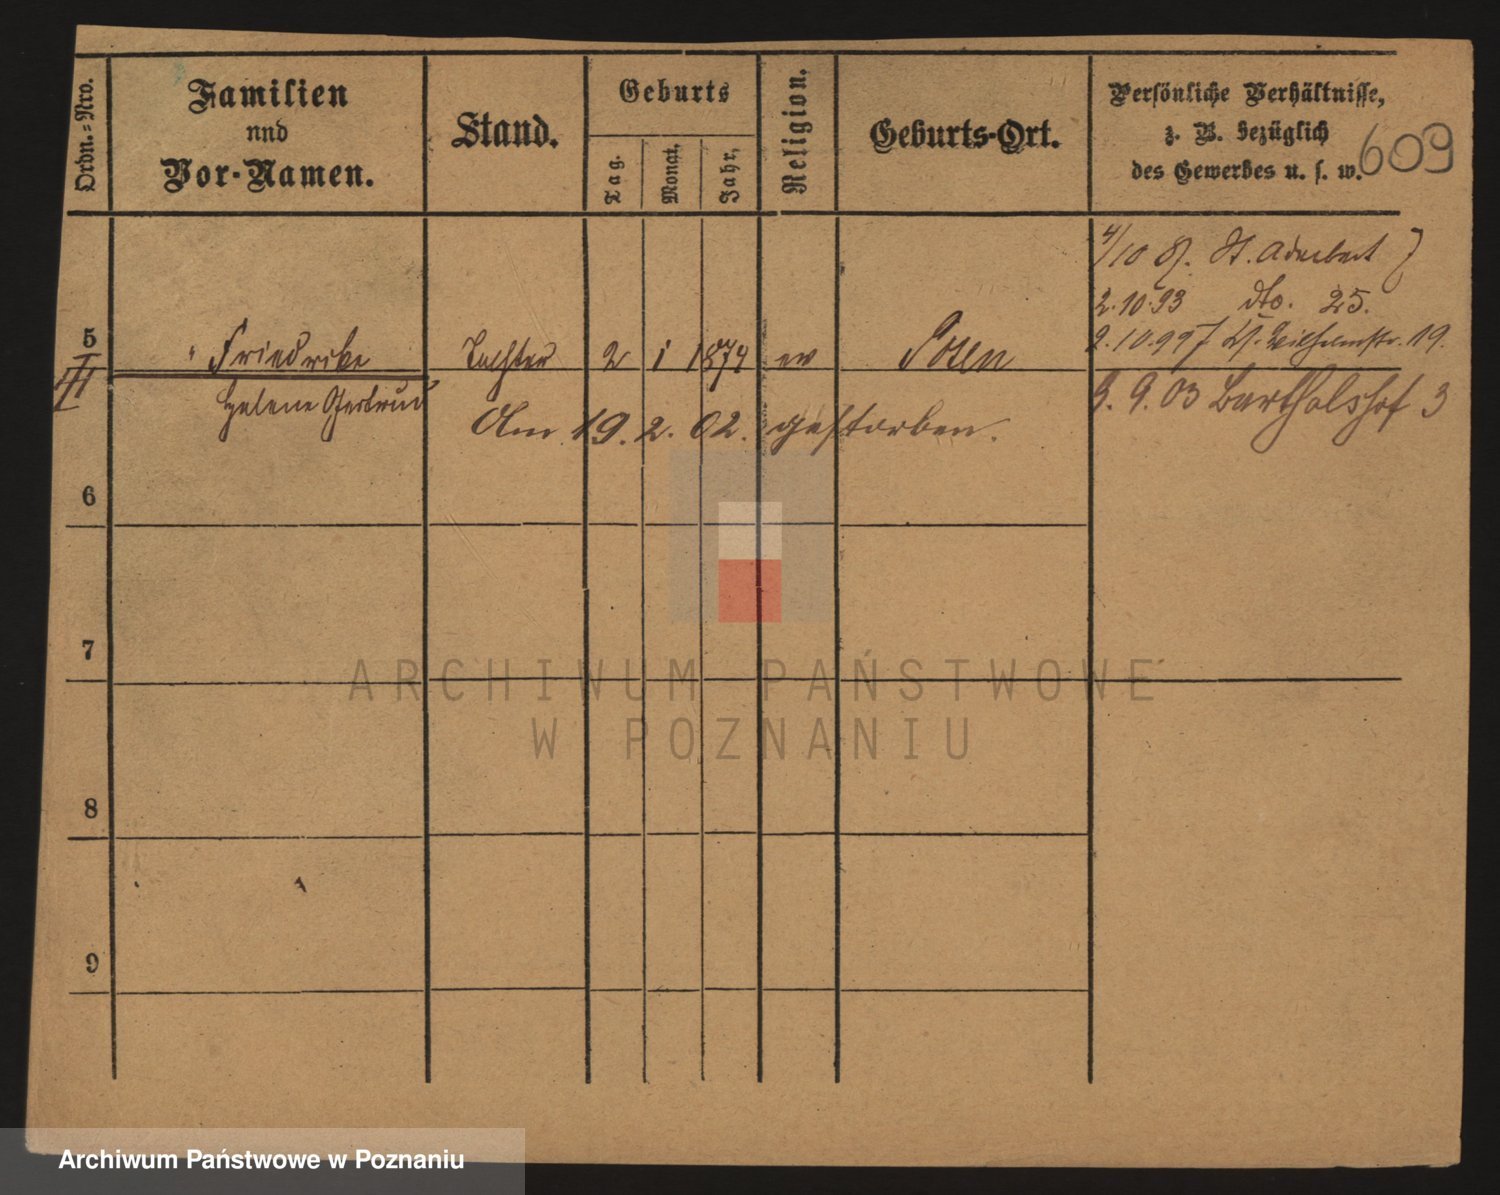 Ordn.=Nro.
Familien
und
Vor-Namen.
Stand.
Geburts
Tag.
Monat,
Jahr,
Religion.
Geburts-Ort.
Persönliche Verhältnisse,
z. B. bezüglich
des Gewerbes u. s. w.
609
4/10 St. Adalbert
2.10.93 dto. 25.
2.10.99 Kl. 19.
5 " Friedrike Tochter 2 1 1874 ev Posen
III
Helene Gertrud
9. 9. 03 Bartholshof 3
Am 19. 2. 02. gestorben.
6
7
8
9
ARCHIWUM PAŃSTWOWE
W POZNANIU
Archiwum Państwowe w Poznaniu